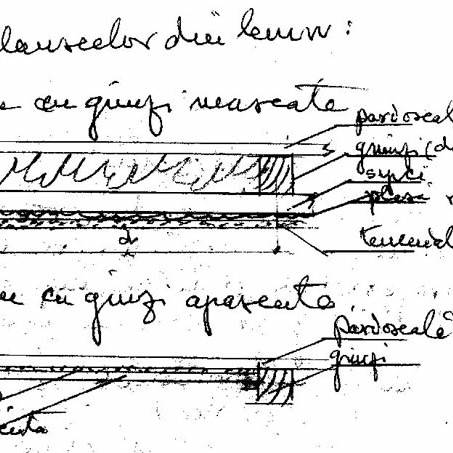 planseelor din lemn:
cu grinzi mascate
pardoseal
grinzi (d
sipci
tencuial
cu grinzi aparente
pardoseală
grinzi